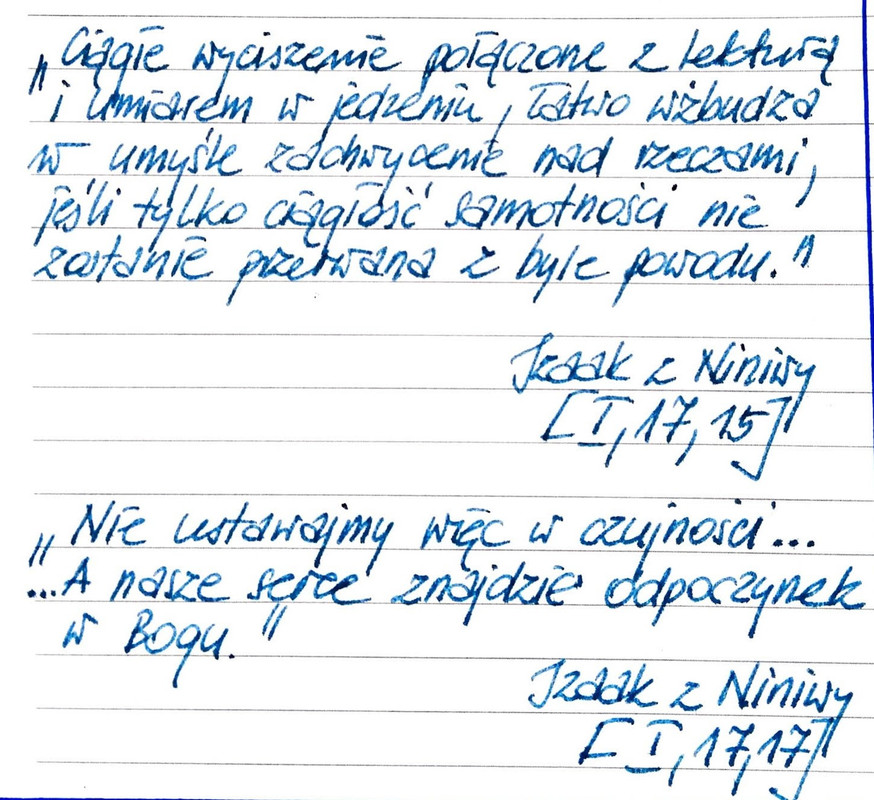 „Ciągłe wyciszenie połączone z lekturą
i umiarem w jedzeniu, łatwo wzbudza
w umyśle zachwycenie nad rzeczami,
jeśli tylko ciągłość samotności nie
zostanie przerwana z byle powodu."
Izaak z Niniwy
[I, 17, 15]
„Nie ustawajmy więc w czujności...
...A nasze serce znajdzie odpoczynek
w Bogu."
Izaak z Niniwy
[I, 17, 17]